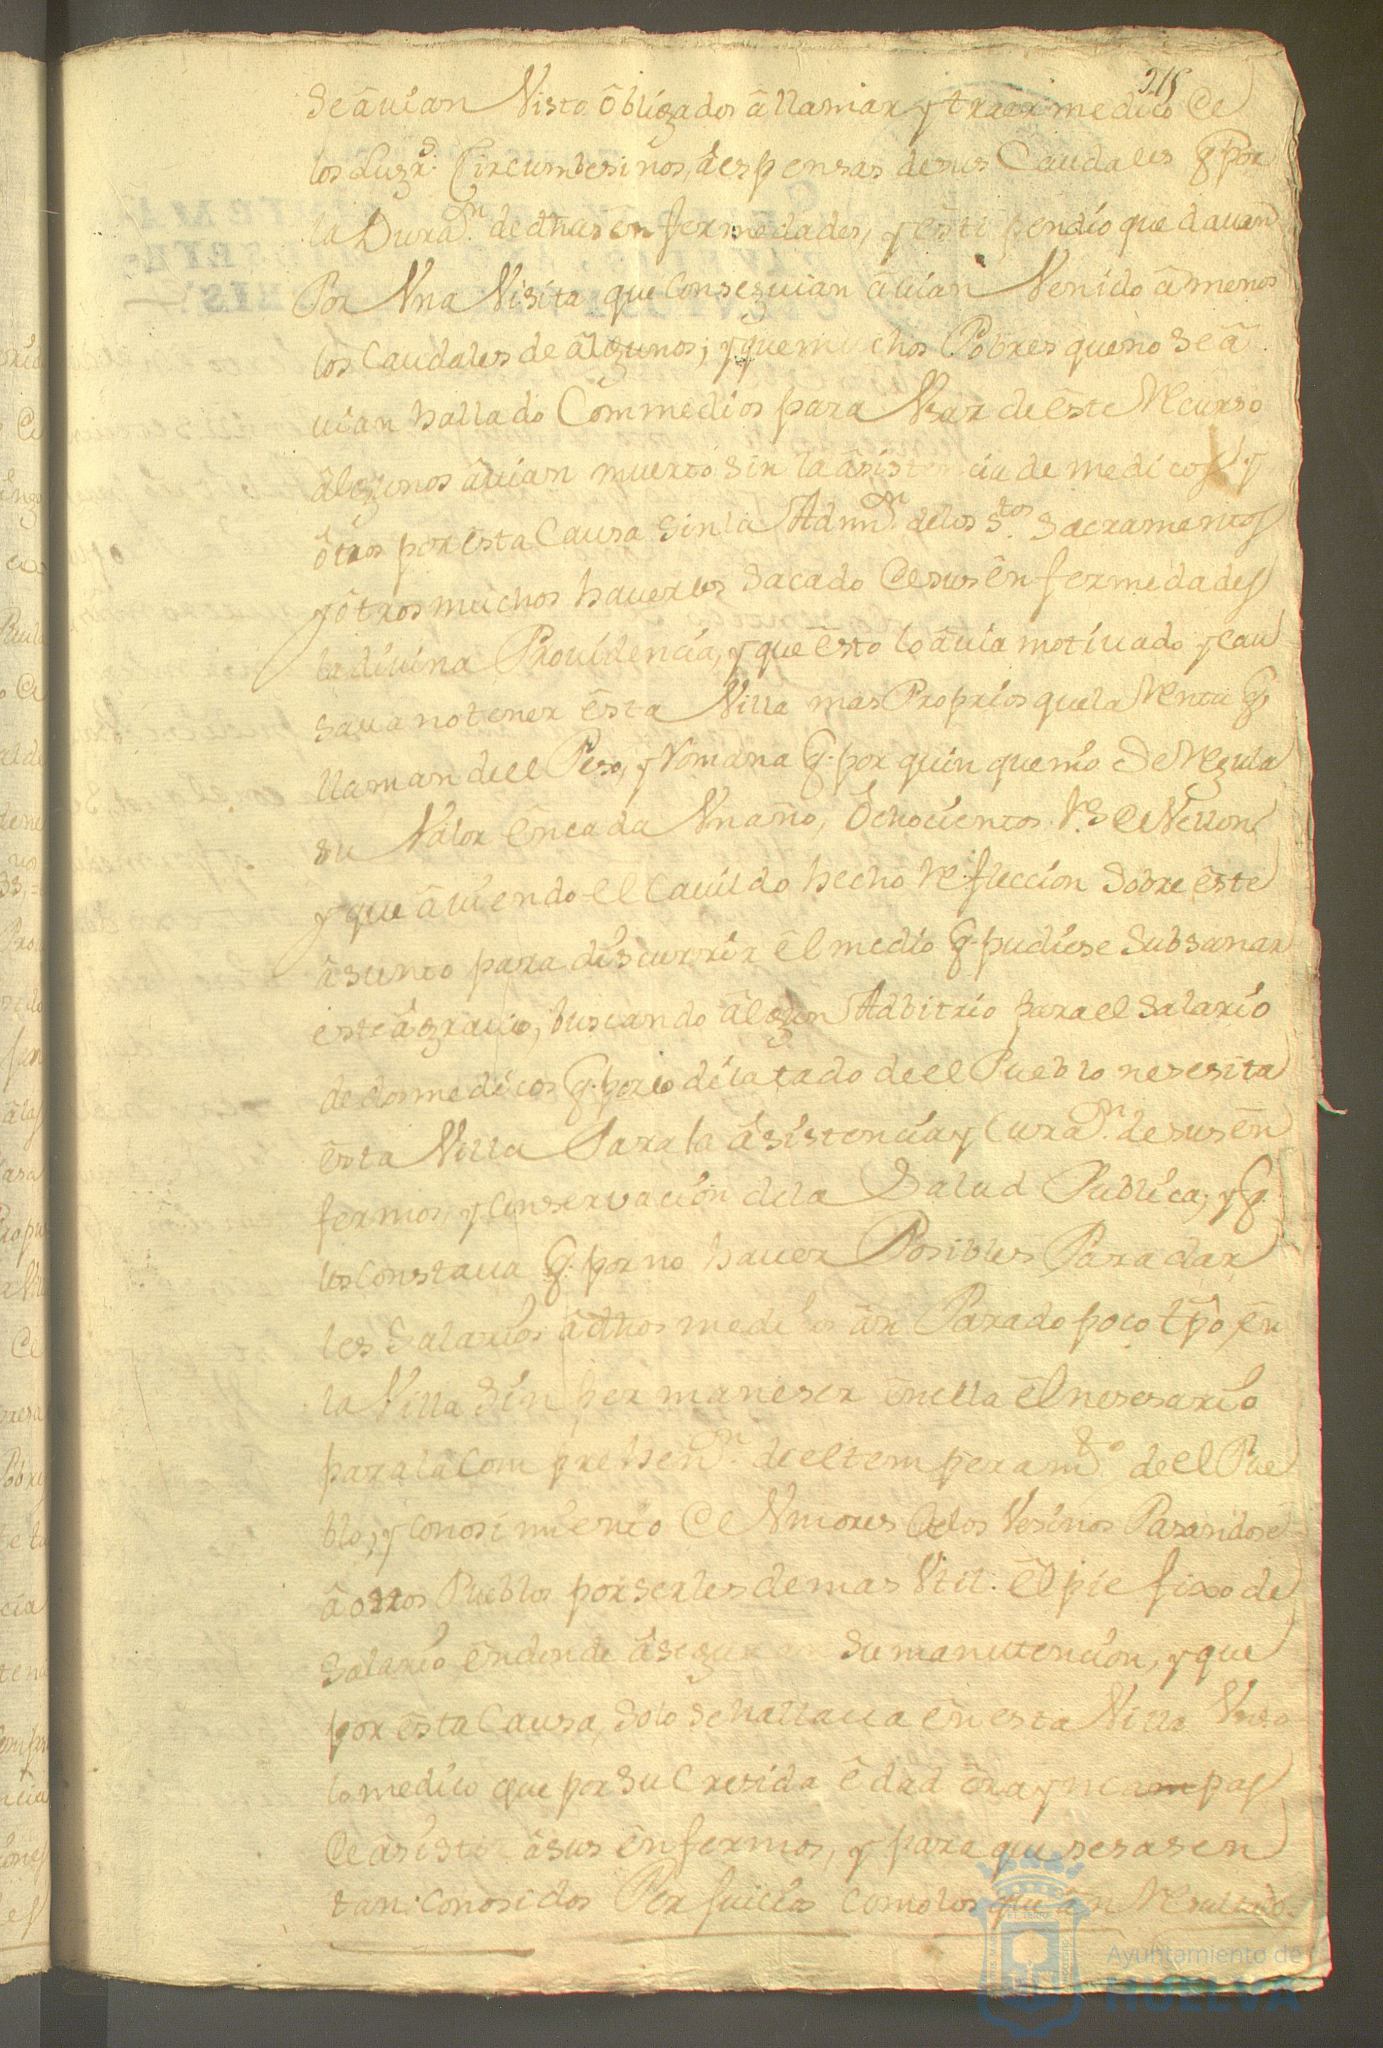 215
Se âuian Visto ôbligados âllamar y traer medico de
los Lugs. Circumbesinos, âespensas desus Caudales q. por
la Duraon. de dhas enfermedades, y estipendio que dauan
Por Vna Visita que Conseguian âuian Venido âmenos
los Caudales de âlgunos; y que muchos Pobres que no se â
uian hallado Com medios para Vsar de êste Recurso
âlgunos âuian muerto sin la âsistencia de medicos, y
ôtros por êsta Causa sin la Admon. de los Stos. Sacramentos
y ôtros muchos hauerlos Sacado de sus ênfermedades
la diuina Prouidencia, y que êsto lo âuia motiuado y cau
saua no tener êsta Villa mas Proprios que la Renta q.
llaman de el Peso, y Romana q. por quinquenio se Regula
su Valor ên cada Vn año, Ochocientos Rs. de Vellon
y que âuiendo el Cauildo hecho Refleccion Sobre êste
âsunto para discurrir êl medio q. pudiese Subsanar
este âgrauio, buscando âlgun Adbitrio para el Salario
de dos medicos q. por lo dilatado de el Pueblo nesesita
êsta Villa Para la âsistencia y Curaon. de sus ên
fermos, y Conservacion de la Salud Publica; y q.
les Constaua q. por no hauer Posibles Para dar
les Salarios âdhos medicos ân Parado poco tpo, ên
la Villa Sin permaneser ên ella êl nesesario
para la Comprehenon. de el temperamto. de el Pue
blo, y conosimiento de Vmores de los Vesinos Pasandose
â otros Pueblos por serles de mas Vtil êl pie fixo de
Salario ên donde âseguran su manutencion, y que
por êsta Causa, solo se hallaua ên esta Villa Vn so
lo medico que por su Cresida êdad êra yncampas
de âsistir âsus ênfermos, y para que sesasen
tan Conosidos Perjuicios como los que ân Resultado.
Ayuntamiento de
HUELVA